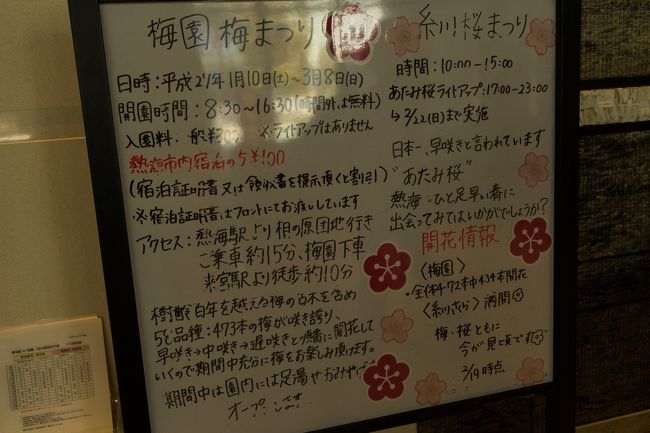 梅園梅まつり
日時：平成27年1月10日(土)～3月8日(日)
開園時間：8:30～16:30(時間外は無料)
入園料：一般¥300 ※ライトアップはありません
熱海市内宿泊の方¥100
(宿泊証明書又は領収書を提示頂くと割引)
※宿泊証明書はフロントにてお渡ししています
アクセス：熱海駅より相の原団地行き
ご乗車約15分、梅園下車
来宮駅より徒歩約10分
樹齢百年を越える梅の古木を含め
品種：473本の梅が咲き誇り、
早咲き→中咲き→遅咲きと順番に開花して
いくので期間中充分に梅をお楽しみ頂けます。
期間中は園内には足湯やおみやげ
オープン
糸川桜まつり
時間：10:00～15:00
あたみ桜ライトアップ：17:00～23:00
↳2/22(日)まで実施
日本一、早咲きと言われています
"あたみ桜"
熱海"ひと足早い春に
出会ってみてはいかがでしょうか？
開花情報
〈梅園〉
・全体472本中434本開花
〈糸川さくら〉満開
梅・桜ともに
今が見頃です
2/19時点